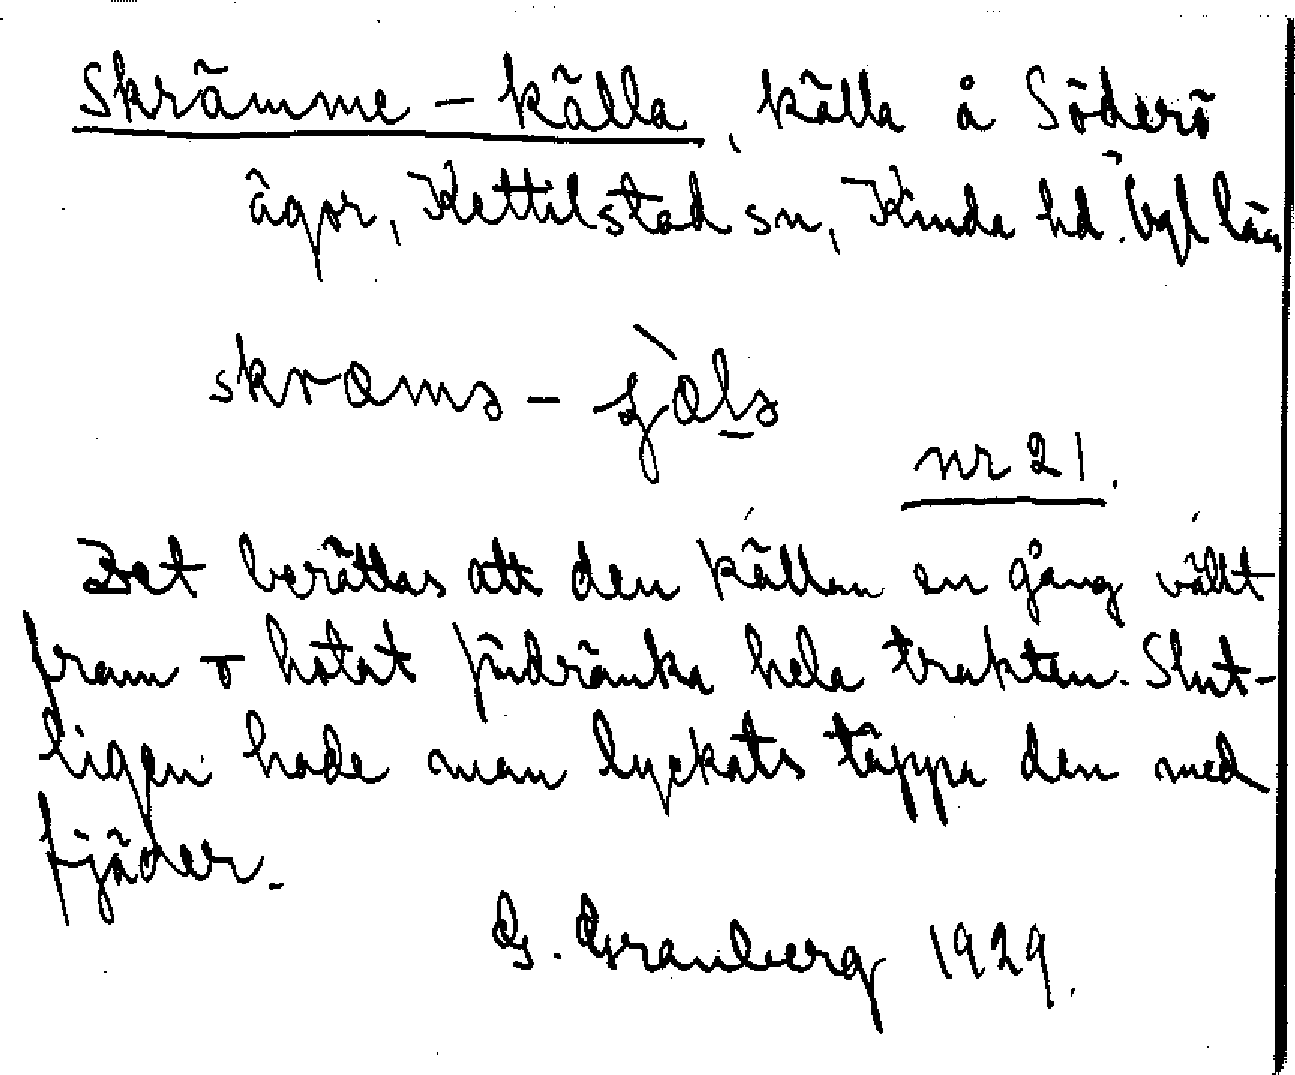 Skrämme - källa, källa å Söderö
ägor, Kettilstad sn, Kinda hd. Ögl län
nr 21.
Det berättas att den källan en gång vällt
fram o hotat fördränka hela trakten. Slut-
ligen hade man lyckats täppa den med
fjäder.
G. Granberg 1929.